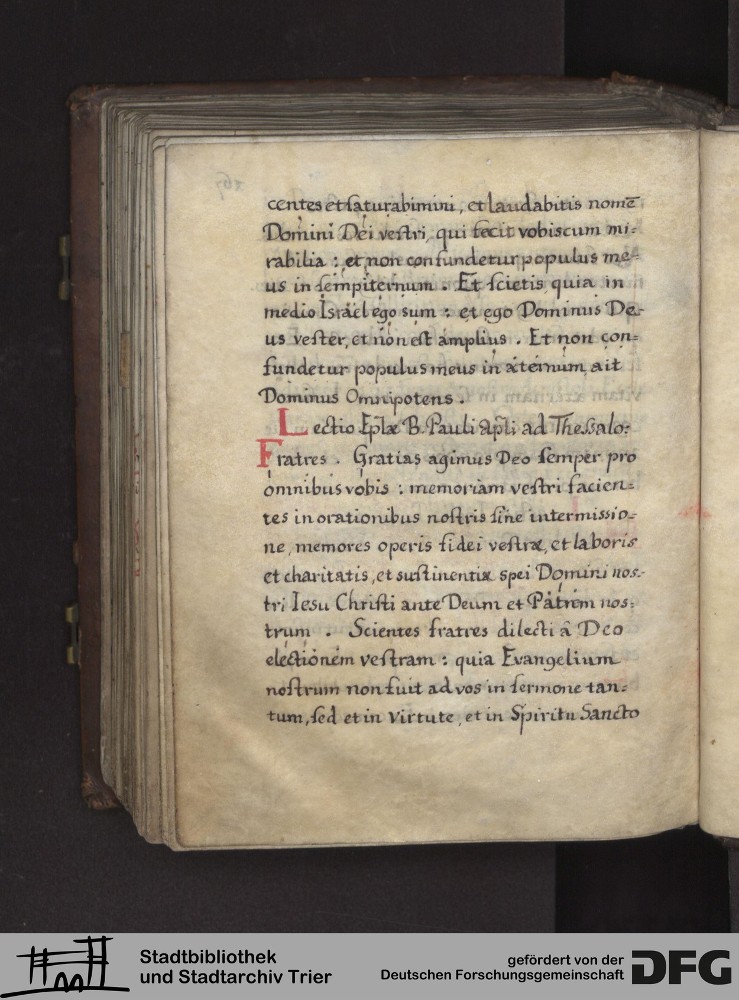 centes et saturabimini, et laudabitis nomē
Domini Dei vestri, qui fecit vobiscum mi:
rabilia : et non confundetur populus me:
us in sempiternum . Et scietis quia in
medio Israël ego sum : et ego Dominus De:
us vester, et non est amplius . Et non con:
fundetur populus meus in æternum, ait
Dominus Omnipotens .
Lectio Eplæ B. Pauli Apli ad Thessalo:
Fratres . Gratias agimus Deo semper pro
omnibus vobis : memoriam vestri facien:
tes in orationibus nostris sine intermissio:
ne, memores operis fidei vestræ, et laboris
et charitatis, et sustinentiæ spei Domini nos:
tri Iesu Christi ante Deum et Patrem nos:
trum . Scientes fratres dilecti â Deo
electionem vestram : quia Evangelium
nostrum non fuit ad vos in sermone tan:
tum, sed et in virtute, et in Spiritu Sancto
Stadtbibliothek
und Stadtarchiv Trier
gefördert von der
Deutschen Forschungsgemeinschaft
DFG